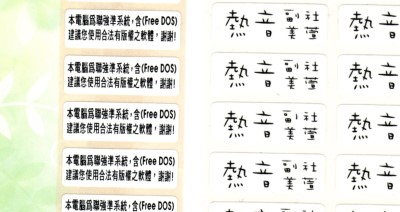 本電腦爲聯強準系統,含(Free DOS)
建議您使用合法有版權之軟體,謝謝!
本電腦爲聯強準系統,含(Free DOS)
建議您使用合法有版權之軟體,謝謝!
本電腦爲聯強準系統,含(Free DOS)
建議您使用合法有版權之軟體,謝謝!
本電腦爲聯強準系統,含(Free DOS)
建議您使用合法有版權之軟體,謝謝!
本電腦爲聯強準系統,含(Free DOS)
熱音副社
美萱
熱音副社
美萱
熱音副社
美萱
熱音副社
美萱
熱音
熱音
熱音
熱音